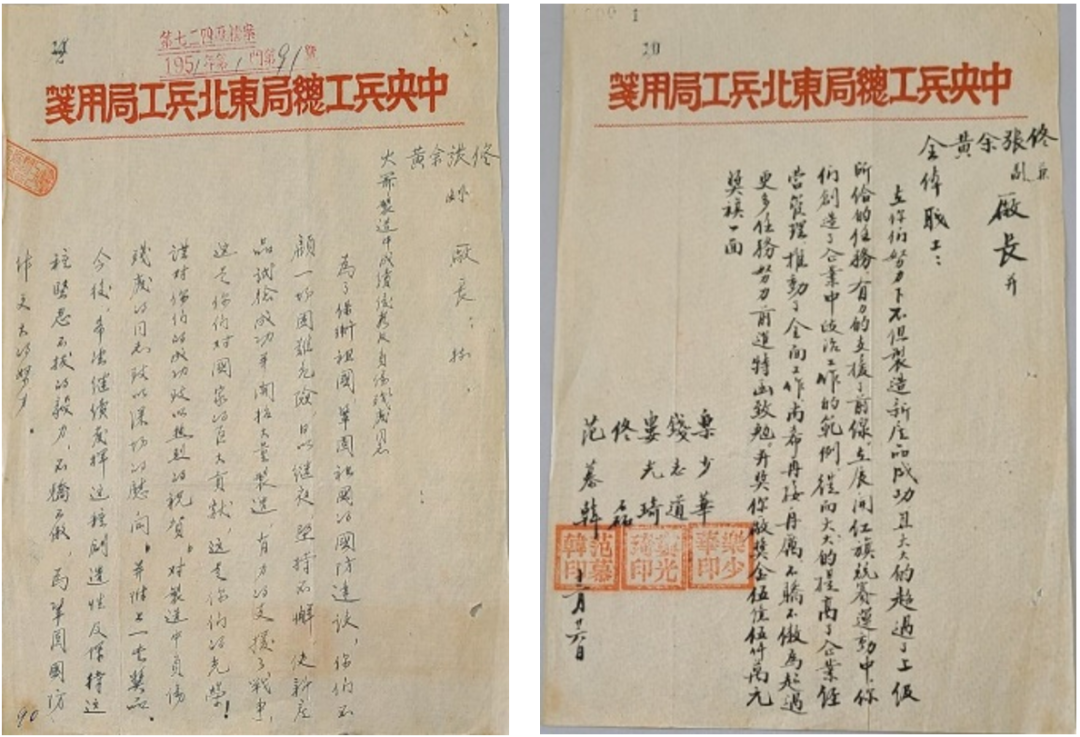 1951年第1門第91號
中央兵工總局東北兵工局用箋
佟 洪 余 黄
廠長：
火箭製造中成績優秀及負傷殘廢同志
為了保衛祖國 鞏固祖國的國防建設，你们不
顧一切困難危險，日以继夜 堅持不懈，使新產
品試验成功并開始大量製造，有力的支援了戰争，
這是你们对國家的巨大貢献，这是你们的光榮！
謹对你们的成功致以热烈的祝賀，对製造中負傷
殘廢的同志致以深切的慰问，并附上一些獎品，
今後，希望继續發揮这種創造性及保持这
種堅忍不拔的毅力，不驕不傲，為鞏固國防
作更大的努力。
90
20
中央兵工總局東北兵工局用箋
佟張余黄正副廠長并
全体職工：
在你们努力下不但製造新產品成功且大大的超過了上级
所给的任務，有力的支援了前線，在展開红旗競賽運動中，你
们創造了企業中政治工作的範例，從而大大的提高了企業经
营管理，推動了全面工作，尚希再接再厲，不驕不傲，為超過
更多任務努力前進，特函致勉。并奖你廠奖金伍億伍仟萬元
奖旗一面
樂少華
錢志道
婁光琦
佟磊
范慕韓
樂少華印
婁光琦印
范慕韓印
月廿六日